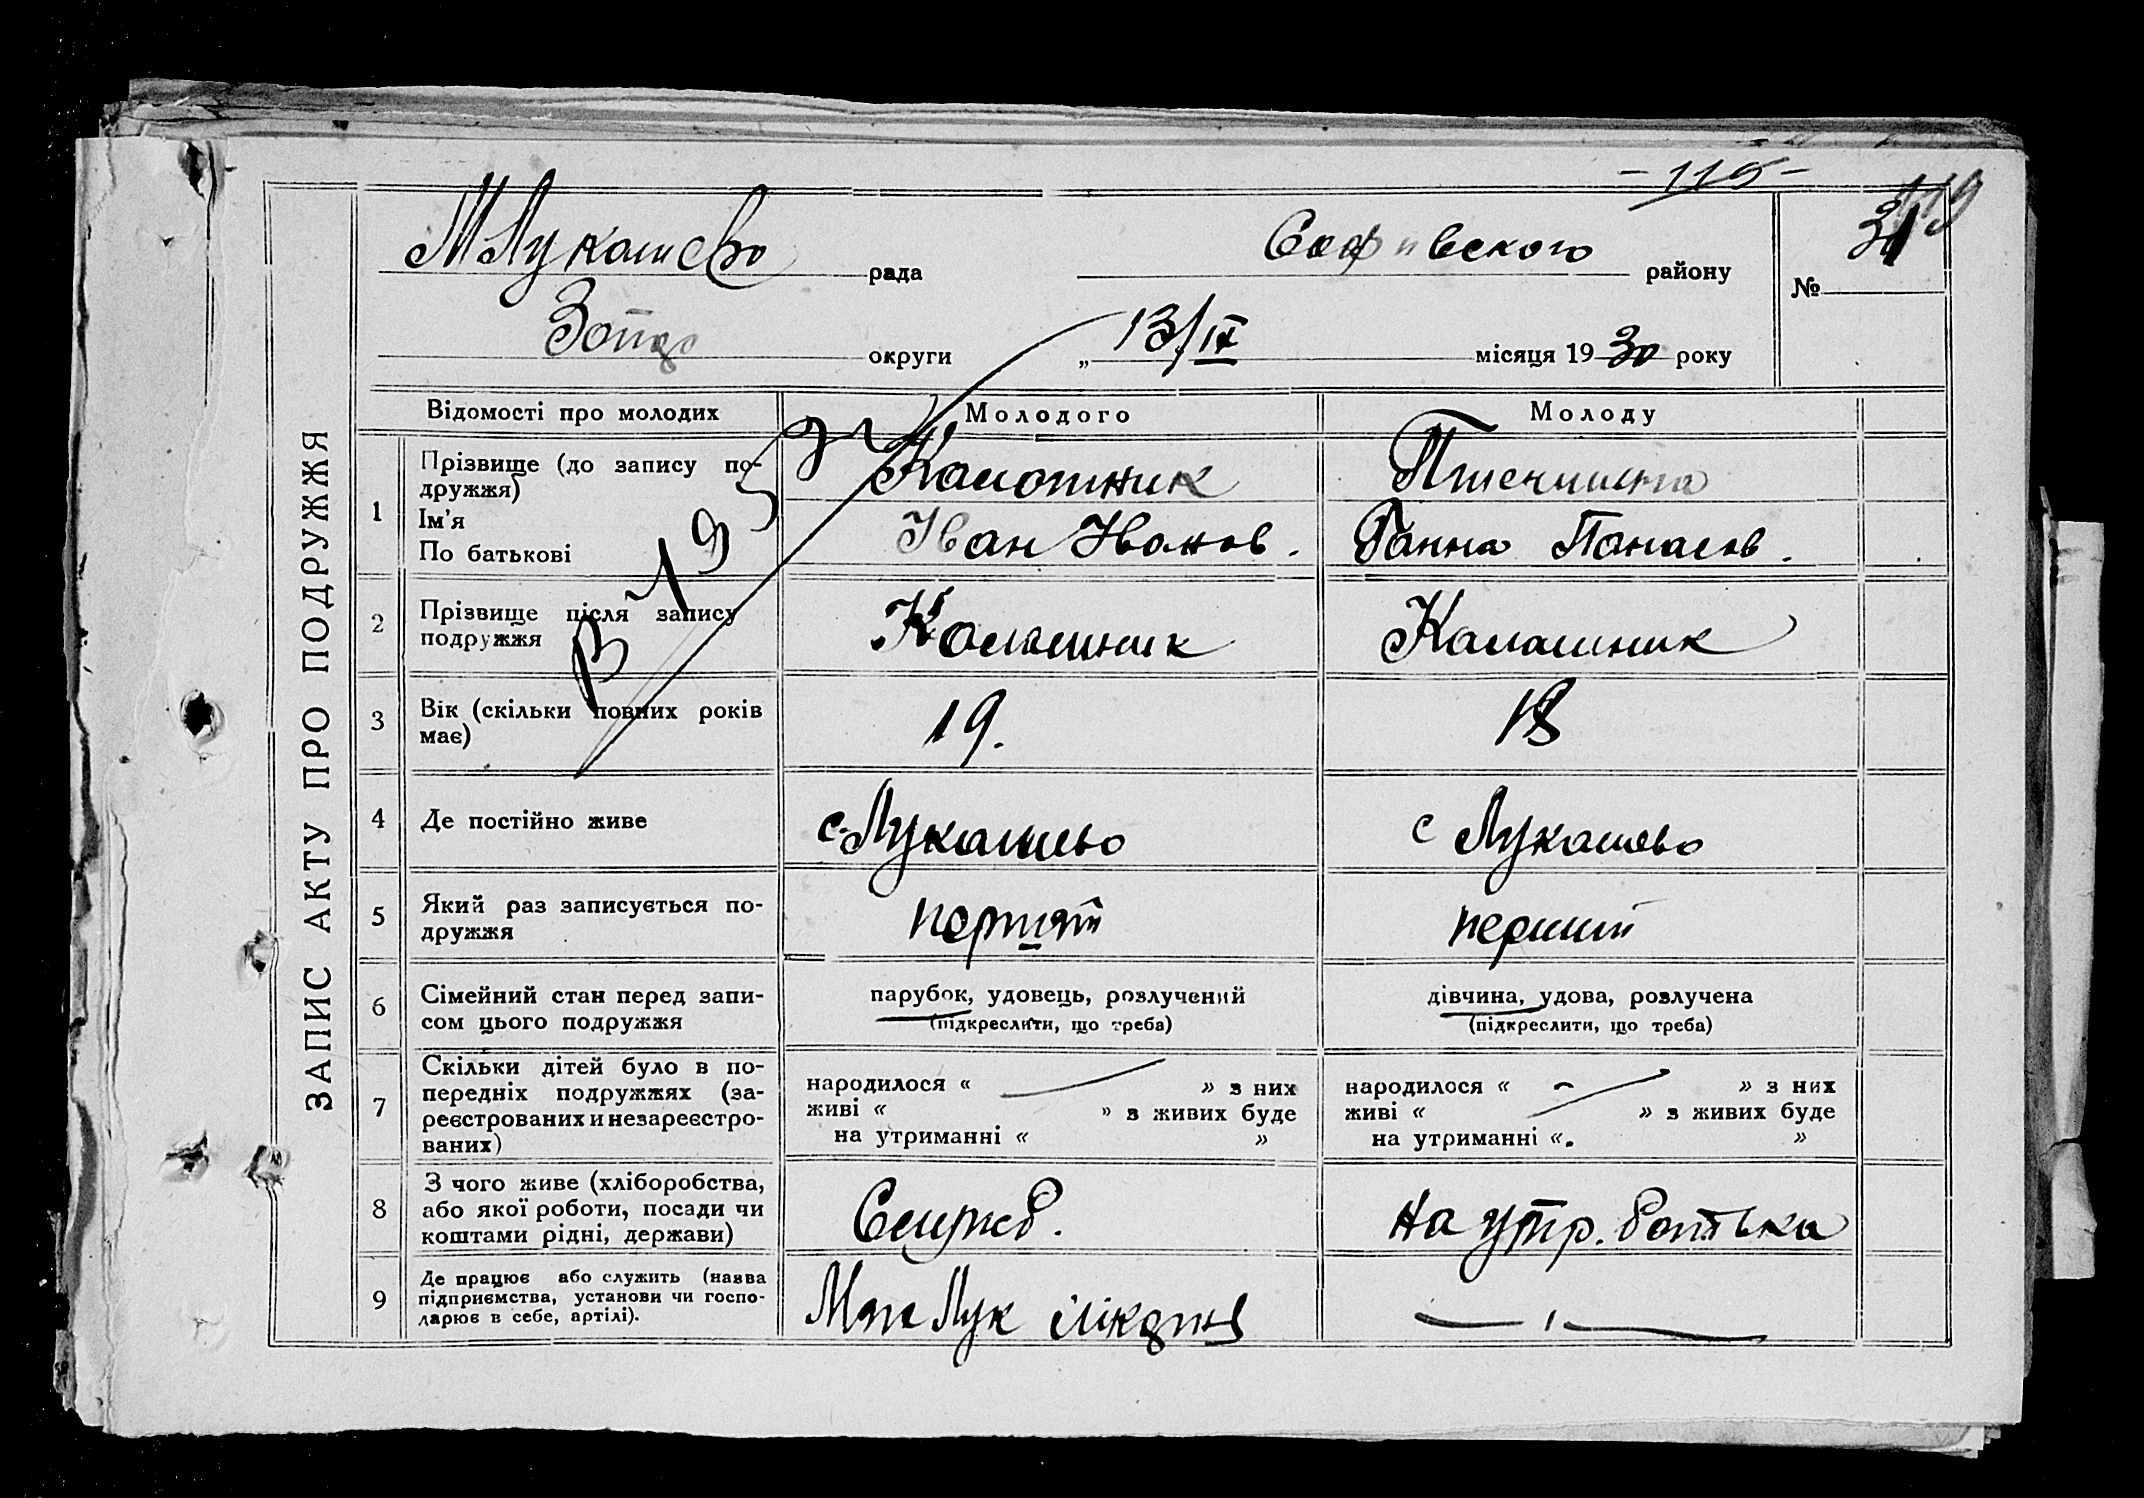 - 115 -
М Лукашево рада Софиевского району
№ 31
округи „ 13/IX місяця 1930 року
ЗАПИС АКТУ ПРО ПОДРУЖЖЯ
Відомості про молодих Молодого Молоду
1 Прізвище (до запису по-
дружжя)
Калашник Пшенишна
Ім'я
По батькові
Іван Іванов. Ганна Панасов.
2 Прізвище після запису
подружжя
Калашник Калашник
3 Вік (скільки повних років
має)
19. 18
4 Де постійно живе с Лукашево с Лукашево
5 Який раз записується по-
дружжя
перший перший
6 Сімейний стан перед запи-
сом цього подружжя
парубок, удовець, розлучений
(підкреслити, що треба)
дівчина, удова, розлучена
(підкреслити, що треба)
7 Скільки дітей було в по-
передніх подружжях (за-
реєстрованих и незареєстро-
ваних)
народилося « » з них
живі « » з живих буде
на утриманні « »
народилося « » з них
живі « » з живих буде
на утриманні « »
8 З чого живе (хліборобства,
або якої роботи, посади чи
коштами рідні, держави)
Служб. на утр. батька
9 Де працює або служить (назва
підприємства, установи чи госпо-
дарює в себе, артілі).
Лук